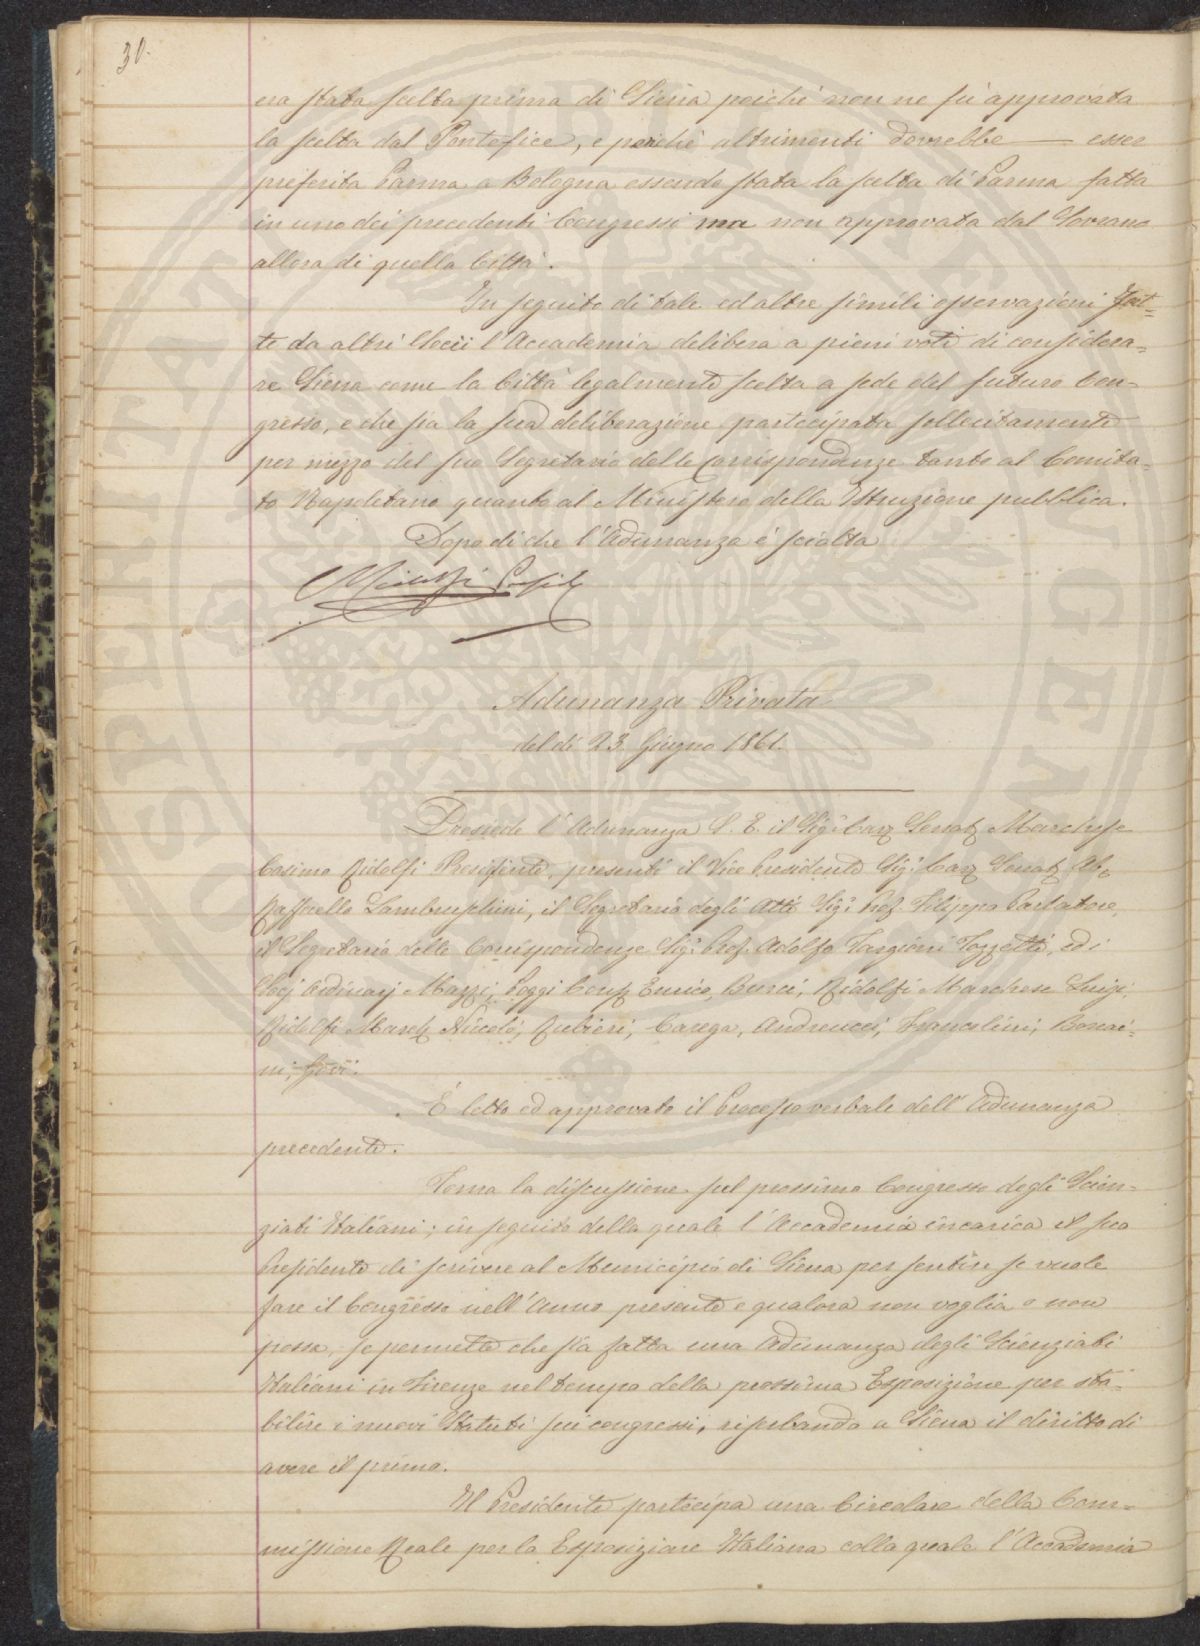 30.
era stata scelta prima di Siena poichè non ne fù approvata
la scelta dal Pontefice, e perchè altrimenti dovrebbe — esser
preferita Parma a Bologna essendo stata la scelta di Parma fatta
in uno dei precedenti Congressi ma non approvata dal Sovrano
allora di quella Città.
In seguito di tale ed altre simili osservazioni fat=
te da altri Socii l'Accademia delibera a pieni voti di considera=
re Siena come la Città legalmente scelta a sede del futuro Con=
gresso, e che sia la sua deliberazione partecipata sollecitamente
per mezzo del suo Segretario delle Corrispondenze tanto al Comita=
to Napoletano quanto al Ministero della Istruzione pubblica.
Dopo di che l'Adunanza è sciolta
Adunanza Privata
del dì 23 Giugno 1861.
Presiede l'Adunanza S. E. il Sig. Cav. Senat. Marchese
Cosimo Ridolfi Presidente, presenti il Vice Presidente Sig. Cav. Senat. Ab.
Raffaello Lambruschini, il Segretario degli Atti Sig. Prof. Filippo Parlatore,
il Segretario delle Corrispondenze Sig. Prof. Adolfo Targioni Tozzetti, ed i
Socj Ordinarj Mazzi, Poggi Enrico, Burci, Ridolfi Marchese Luigi,
Ridolfi March. Niccolò, Rubieri, Carega, Andreucci, Francolini, Bonai=
ni, Govi.
È letto ed approvato il Processo verbale dell'Adunanza
precedente.
Torna la discussione sul prossimo Congresso degli Scien=
ziati Italiani; in seguito della quale l'Accademia incarica il suo
Presidente di scrivere al Municipio di Siena per sentire se vuole
fare il Congresso nell'Anno presente e qualora non voglia o non
possa, se permette che sia fatta una Adunanza degli Scienziati
Italiani in Firenze nel tempo della prossima Esposizione per sta=
bilire i nuovi Statuti sui congressi, riserbando a Siena il diritto di
avere il primo.
Il Presidente partecipa una Circolare della Com=
missione Reale per la Esposizione Italiana colla quale l'Accademia